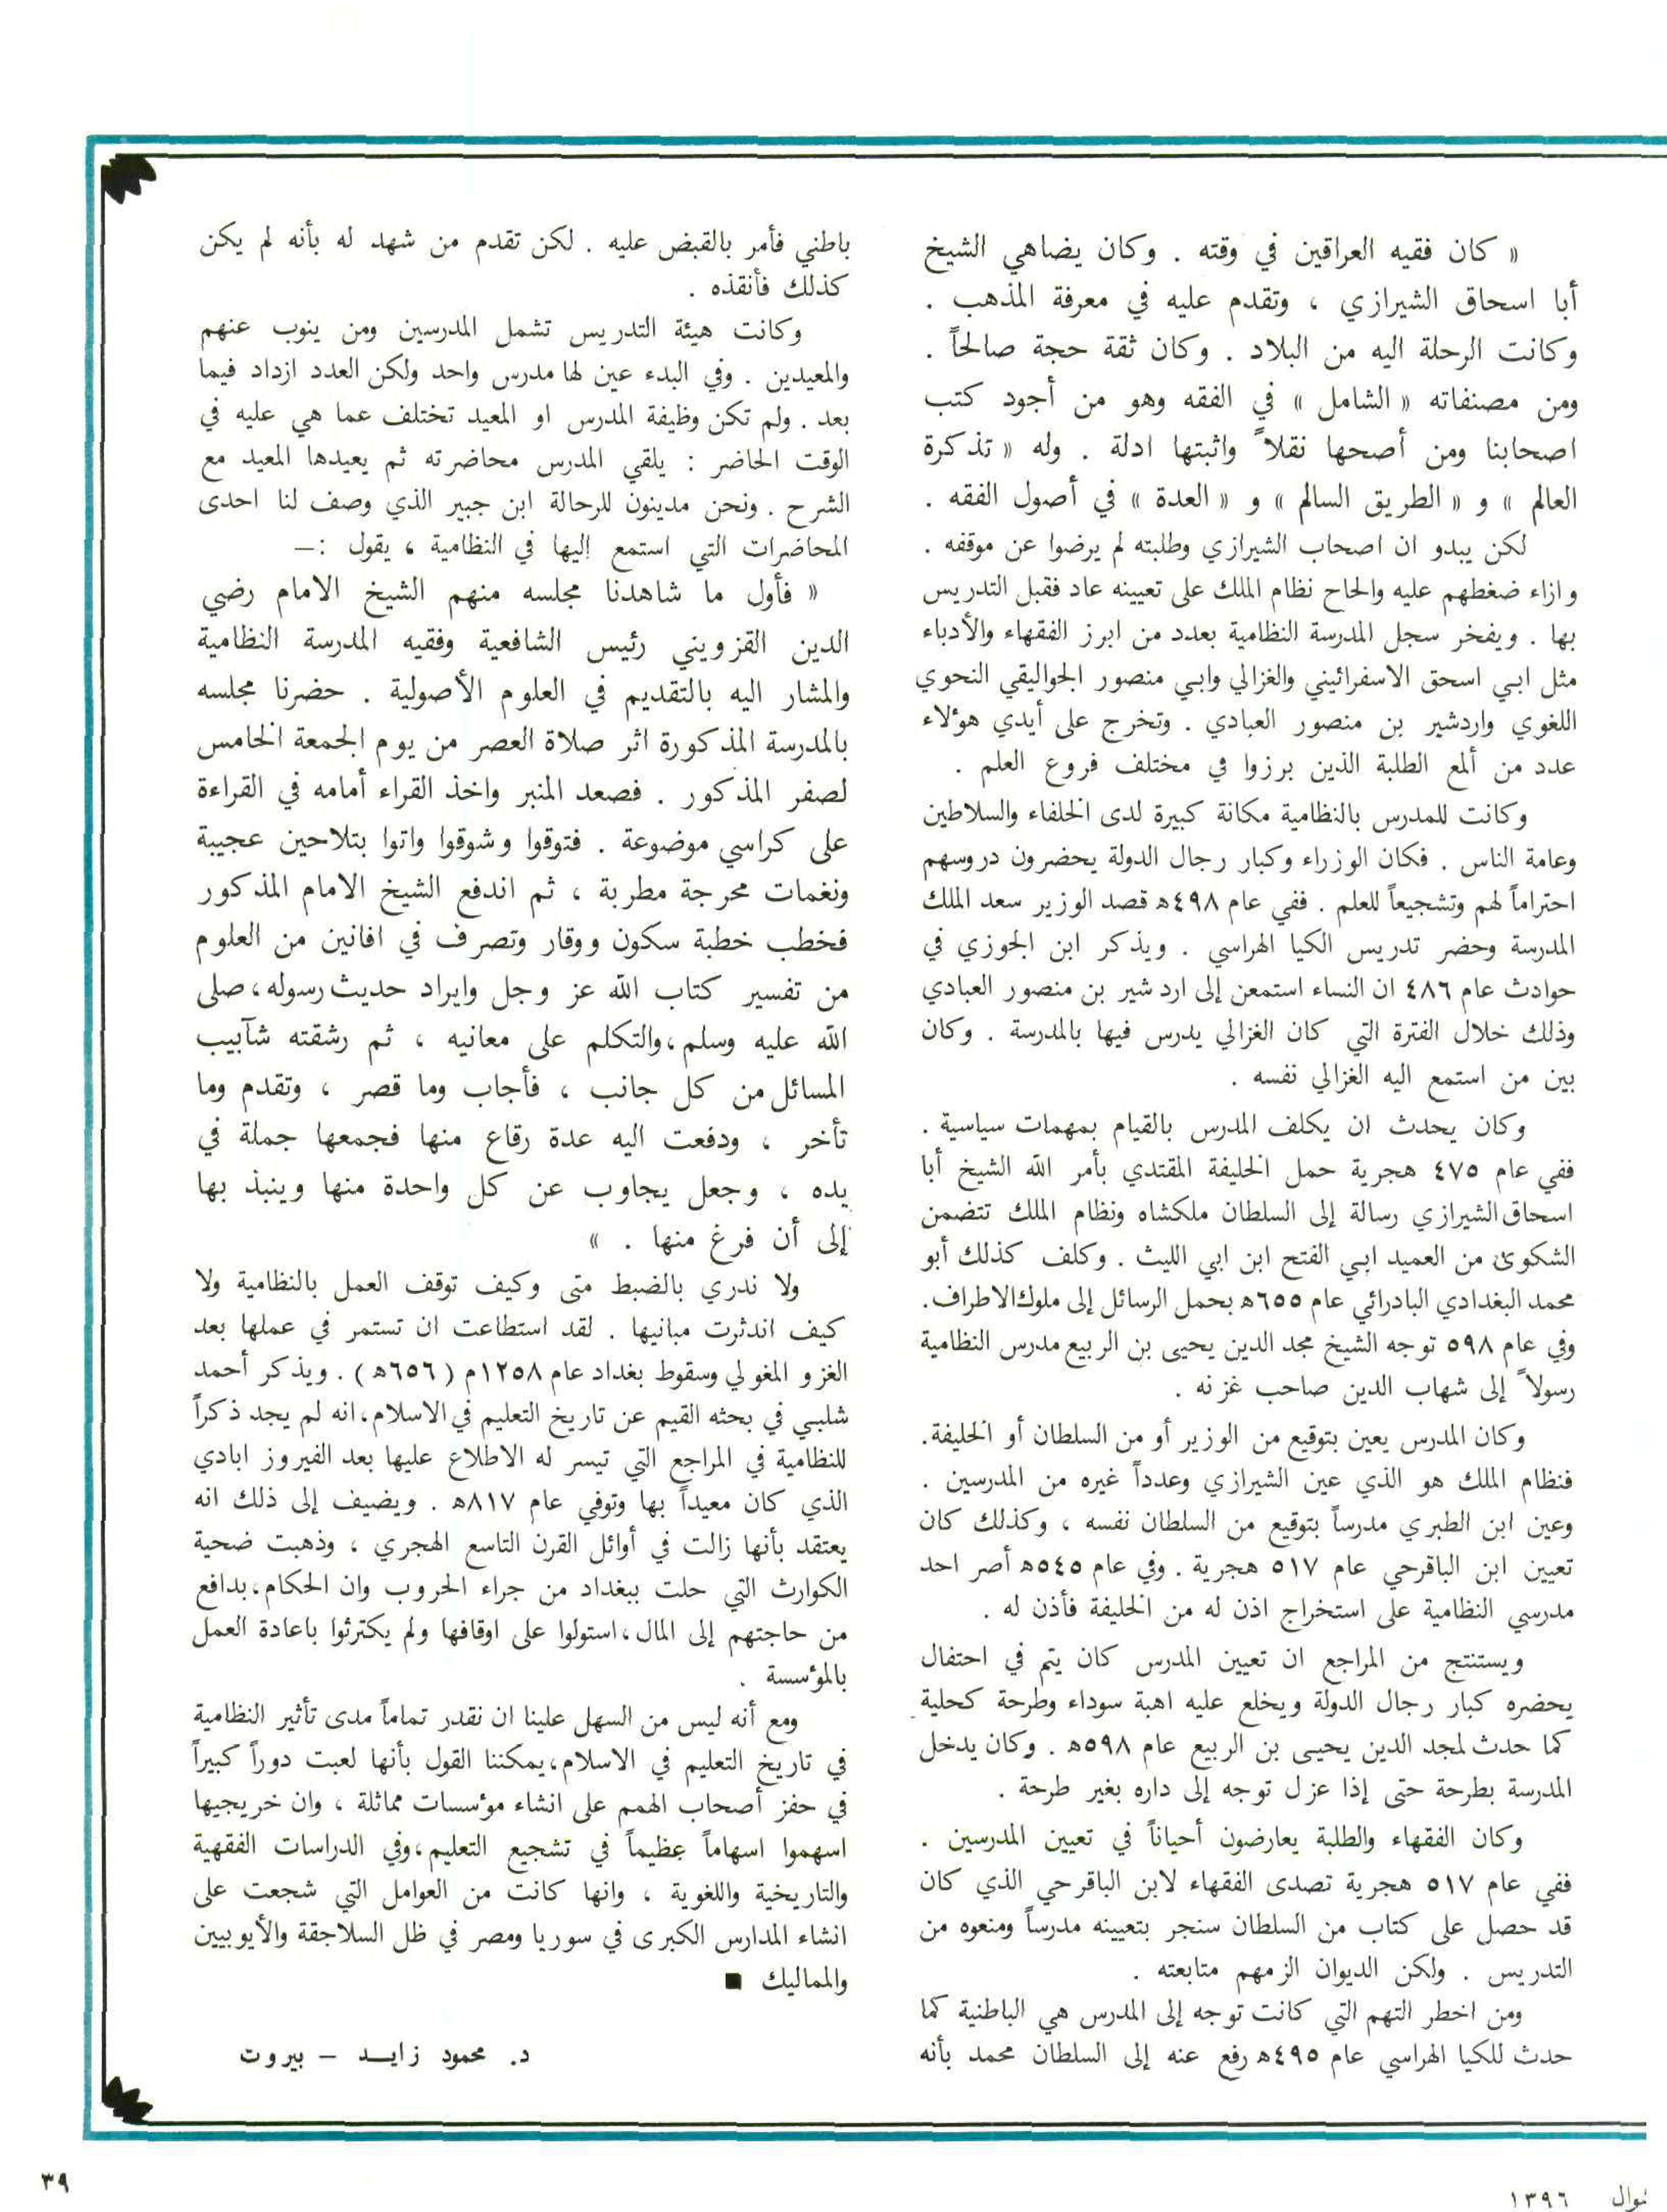 « كان فقيه العراقين في وقته . وكان يضاهي الشيخ
أبا اسحاق الشيرازي ، وتقدم عليه في معرفة المذهب .
وكانت الرحلة اليه من البلاد . وكان ثقة حجة صالحاً .
ومن مصنفاته « الشامل » في الفقه وهو من أجود كتب
اصحابنا ومن أصحها نقلاً واثبتها ادلة . وله « تذكرة
العالم » و « الطريق السالم » و « العدة » في أصول الفقه .
لكن يبدو ان اصحاب الشيرازي وطلبته لم يرضوا عن موقفه .
وازاء ضغطهم عليه والحاح نظام الملك على تعيينه عاد فقبل التدريس
بها . ويفخر سجل المدرسة النظامية بعدد من ابرز الفقهاء والأدباء
مثل ابي اسحق الاسفرائيني والغزالي وابي منصور الجواليقي النحوي
اللغوي واردشير بن منصور العبادي . وتخرج على أيدي هؤلاء
عدد من ألمع الطلبة الذين برزوا في مختلف فروع العلم .
وكانت للمدرس بالنظامية مكانة كبيرة لدى الخلفاء والسلاطين
وعامة الناس . فكان الوزراء وكبار رجال الدولة يحضرون دروسهم
احتراماً لهم وتشجيعاً للعلم . ففي عام ٤٩٨ه قصد الوزير سعد الملك
المدرسة وحضر تدريس الكيا الهراسي . ويذكر ابن الجوزي في
حوادث عام ٤٨٦ ان النساء استمعن إلى اردشير بن منصور العبادي
وذلك خلال الفترة التي كان الغزالي يدرس فيها بالمدرسة . وكان
بين من استمع اليه الغزالي نفسه .
وكان يحدث ان يكلف المدرس بالقيام بمهمات سياسية .
ففي عام ٤٧٥ هجرية حمل الخليفة المقتدي بأمر الله الشيخ أبا
اسحاق الشيرازي رسالة إلى السلطان ملكشاه ونظام الملك تتضمن
الشكوى من العميد ابي الفتح ابن ابي الليث . وكلف كذلك أبو
محمد البغدادي البادرائي عام ٦٥٥ه بحمل الرسائل إلى ملوك الاطراف.
وفي عام ٥٩٨ توجه الشيخ مجد الدين يحيى بن الربيع مدرس النظامية
رسولاً إلى شهاب الدين صاحب غزنه .
وكان المدرس يعين بتوقيع من الوزير أو من السلطان أو الخليفة.
فنظام الملك هو الذي عين الشيرازي وعدداً غيره من المدرسين .
وعين ابن الطبري مدرساً بتوقيع من السلطان نفسه ، وكذلك كان
تعيين ابن الباقرحي عام ٥١٧ هجرية . وفي عام ٥٤٥ه أصر احد
مدرسي النظامية على استخراج اذن له من الخليفة فأذن له .
ويستنتج من المراجع ان تعيين المدرس كان يتم في احتفال
يحضره كبار رجال الدولة ويخلع عليه اهبة سوداء وطرحة كحلية
كما حدث لمجد الدين يحيى بن الربيع عام ٥٩٨ه . وكان يدخل
المدرسة بطرحة حتى إذا عزل توجه إلى داره بغير طرحة .
وكان الفقهاء والطلبة يعارضون أحياناً في تعيين المدرسين .
ففي عام ٥١٧ هجرية تصدى الفقهاء لابن الباقرحي الذي كان
قد حصل على كتاب من السلطان سنجر بتعيينه مدرساً ومنعوه من
التدريس . ولكن الديوان الزمهم متابعته .
ومن اخطر التهم التي كانت توجه إلى المدرس هي الباطنية كما
حدث للكيا الهراسي عام ٤٩٥ه رفع عنه إلى السلطان محمد بأنه
باطني فأمر بالقبض عليه . لكن تقدم من شهد له بأنه لم يكن
كذلك فأنقذه .
وكانت هيئة التدريس تشمل المدرسين ومن ينوب عنهم
والمعيدين . وفي البدء عين لها مدرس واحد ولكن العدد ازداد فيما
بعد . ولم تكن وظيفة المدرس او المعيد تختلف عما هي عليه في
الوقت الحاضر : يلقي المدرس محاضرته ثم يعيدها المعيد مع
الشرح . ونحن مدينون للرحالة ابن جبير الذي وصف لنا احدى
المحاضرات التي استمع إليها في النظامية ، يقول :—
« فأول ما شاهدنا مجلسه منهم الشيخ الامام رضي
الدين القزويني رئيس الشافعية وفقيه المدرسة النظامية
والمشار اليه بالتقديم في العلوم الأصولية . حضرنا مجلسه
بالمدرسة المذكورة اثر صلاة العصر من يوم الجمعة الخامس
لصفر المذكور . فصعد المنبر واخذ القراء أمامه في القراءة
على كراسي موضوعة . فتوقوا وشوقوا واتوا بتلاحين عجيبة
ونغمات محرجة مطربة ، ثم اندفع الشيخ الامام المذكور
فخطب خطبة سكون ووقار وتصرف في افانين من العلوم
من تفسير كتاب الله عز وجل وايراد حديث رسوله، صلى
الله عليه وسلم، والتكلم على معانيه ، ثم رشقته شآبيب
المسائل من كل جانب ، فأجاب وما قصر ، وتقدم وما
تأخر ، ودفعت اليه عدة رقاع منها فجمعها جملة في
يده ، وجعل يجاوب عن كل واحدة منها وينبذ بها
إلى أن فرغ منها . »
ولا ندري بالضبط متى وكيف توقف العمل بالنظامية ولا
كيف اندثرت مبانيها . لقد استطاعت ان تستمر في عملها بعد
الغزو المغولي وسقوط بغداد عام ١٢٥٨م (٦٥٦ه) . ويذكر أحمد
شلبي في بحثه القيم عن تاريخ التعليم في الاسلام، انه لم يجد ذكراً
للنظامية في المراجع التي تيسر له الاطلاع عليها بعد الفيروز ابادي
الذي كان معيداً بها وتوفي عام ٨١٧ه . ويضيف إلى ذلك انه
يعتقد بأنها زالت في أوائل القرن التاسع الهجري ، وذهبت ضحية
الكوارث التي حلت ببغداد من جراء الحروب وان الحكام، بدافع
من حاجتهم إلى المال، استولوا على اوقافها ولم يكترثوا باعادة العمل
بالمؤسسة .
ومع أنه ليس من السهل علينا ان نقدر تماماً مدى تأثير النظامية
في تاريخ التعليم في الاسلام، يمكننا القول بأنها لعبت دوراً كبيراً
في حفز أصحاب الهمم على انشاء مؤسسات مماثلة ، وان خريجيها
اسهموا اسهاماً عظيماً في تشجيع التعليم، وفي الدراسات الفقهية
والتاريخية واللغوية ، وانها كانت من العوامل التي شجعت على
انشاء المدارس الكبرى في سوريا ومصر في ظل السلاجقة والأيوبيين
والمماليك ■
د. محمود زايـد – بيروت
٣٩
١٣٩٦